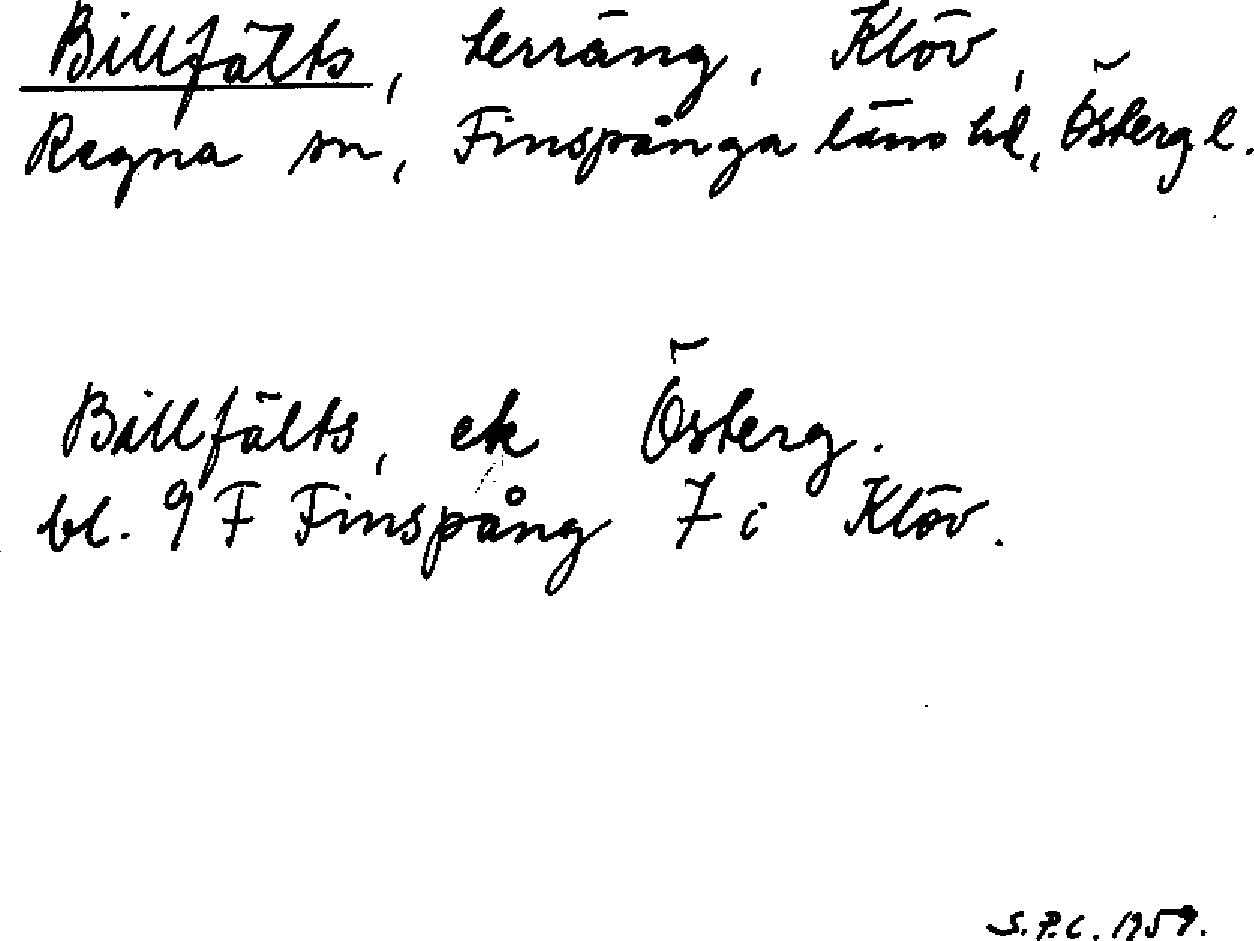 Billfälts, terräng, Klöv,
Regna sn, Finspånga läns hd, Östergl.
Billfälts, ek Österg.
bl. 9 F Finspång 7 i Klöv.
S.P.C. 1959.